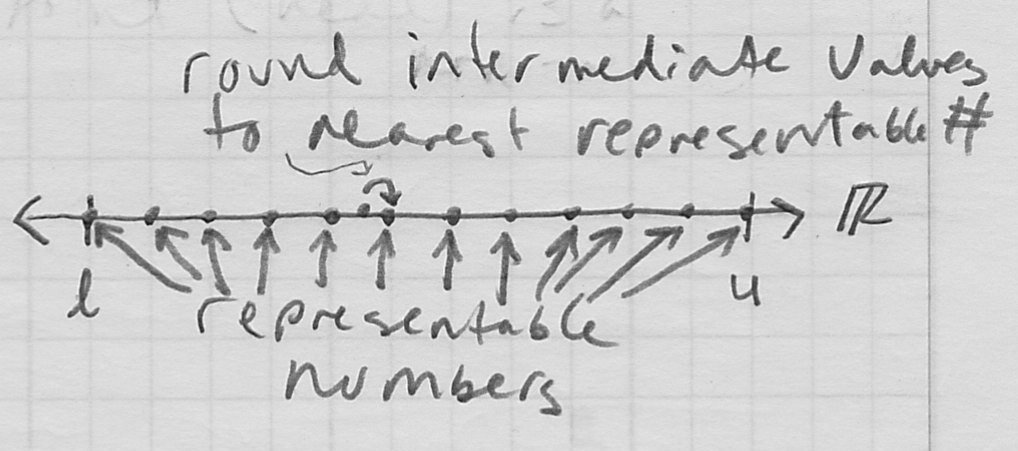 round intermediate values
to nearest representable #
ℝ
l
u
representable
numbers